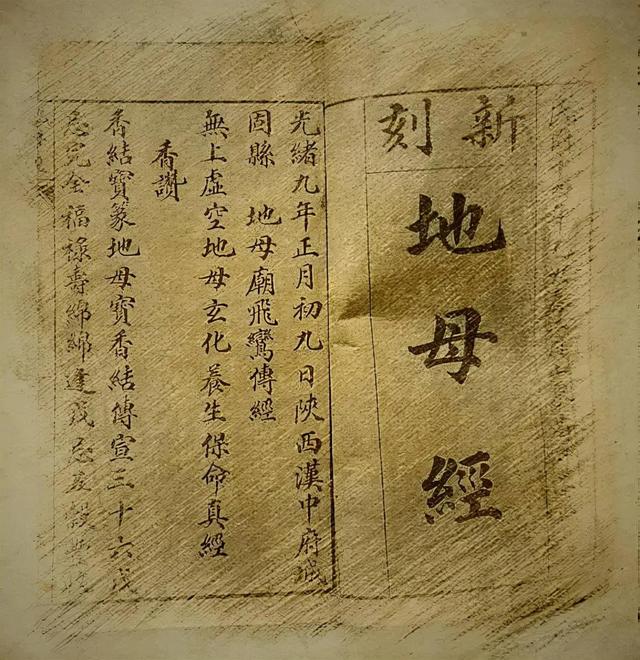 民國
新刻
地母經
光緒九年正月初九日陝西漢中府城
固縣 地母廟飛鸞傳經
無上虛空地母玄化養生保命真經
香讚
香結寶篆地母寶香結傳宣三十六戊
忌完全福祿壽綿綿逢戊忌五穀豐收